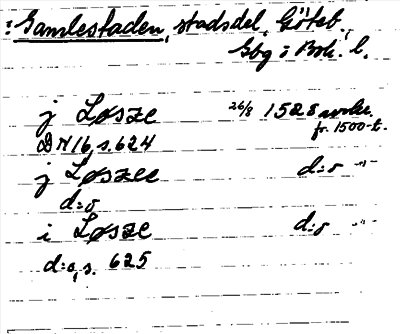 : Gamlestaden, stadsdel, Göteb.,
Gbg o Boh. l.
j Løsze 26/8 1528
fr. 1500-t.
DN 16, s. 624
j Løszee d:o "
d:o
i Løsze d:o "
d:o, s. 625